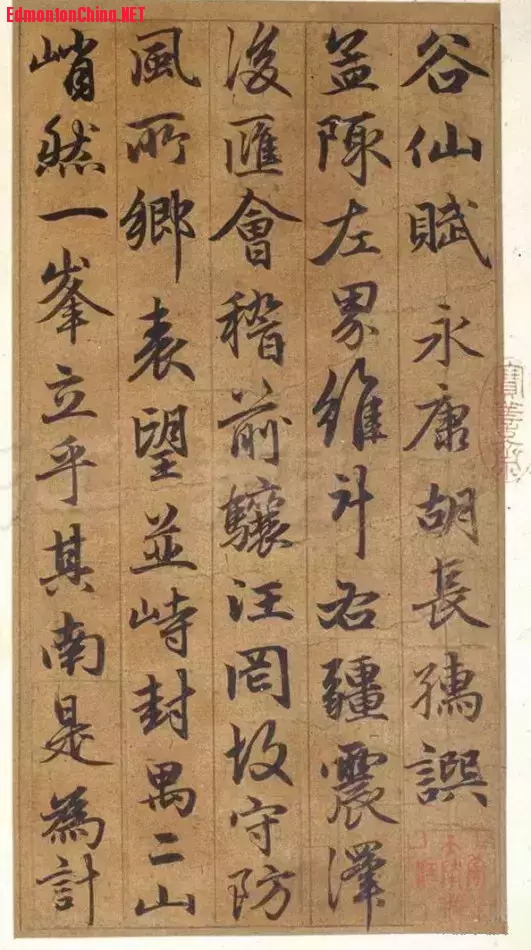 EdmontonChina.NET
谷仙賦 永康胡長孺譔
益陳左界維斗右疆震澤
後匯會稽前驤汪罔故守防
風所鄉表望並峙封禺二山
峭然一峯立乎其南是為計